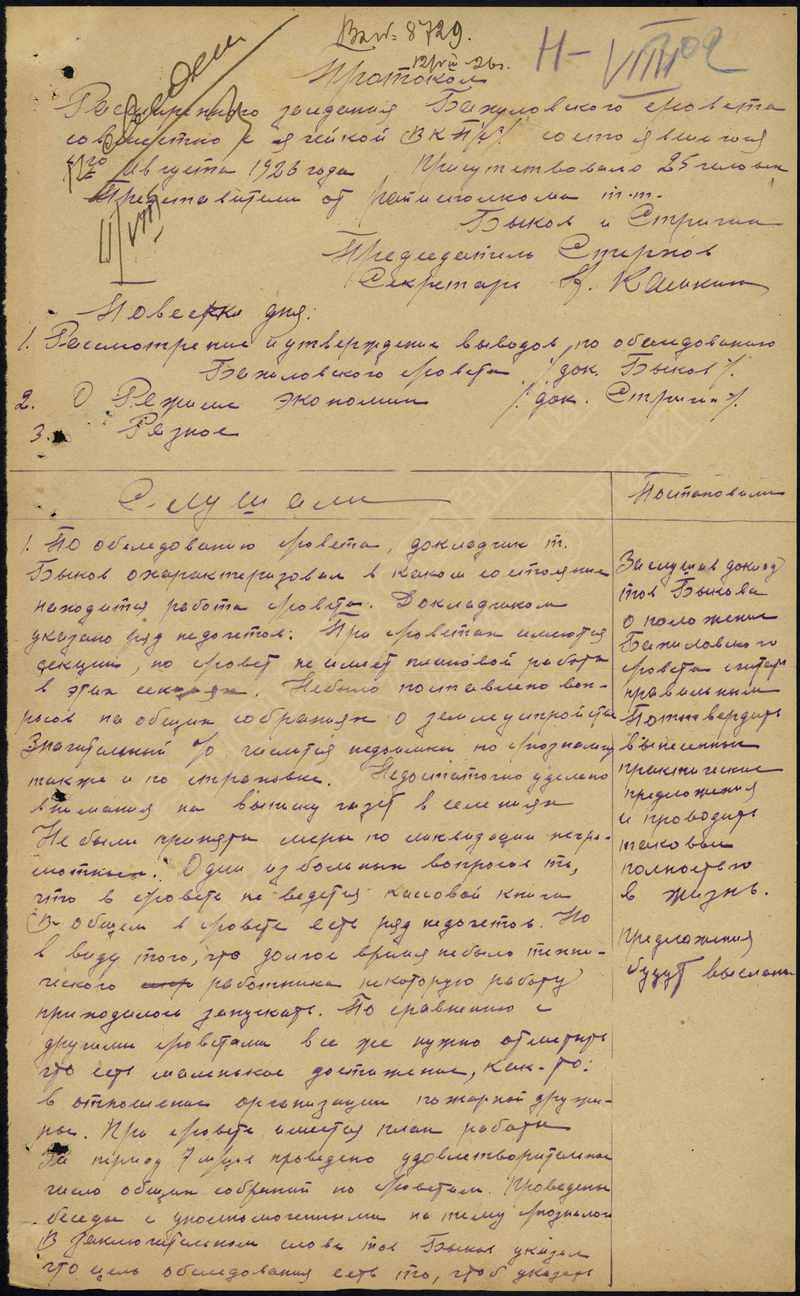 Вх № 8729.
12/VIII-26г.
Н-VIII
Протокол
Расширенного заседания Бахиловского с/совета
совместно с ячейкой ВКП/б/ состоявшегося
августа 1926 года Присутствовало 25 человек
Представители от райисполкома т.т.
Быков и Стригин
Председатель Смирнов
Секретарь
Повестка дня:
1. Рассмотрение и утверждение выводов по обследованию
Бахиловского с/совета /док. Быков/.
2. О Режиме экономии /док. Стригин/.
3. Разное
Слушали
1. По обследованию с/совета, докладчик т.
Быков охарактеризовал в каком состояние
находится работа с/совета. Докладчиком
указано ряд недочетов: При с/советах имеются
секции, но с/совет не имеет плановой работы
в этих секциях. Небыло поставлено воп-
росов на общих собраниях о землеустройстве
Значительный % числится недоимки по с/хозналогу
также и по страховке. Недостаточно уделено
внимания на выписку газет в селениях
Не были приняты меры по ликвидации негра-
мотных. Один из больных вопросов то,
что в с/совете не ведется кассовой книги
В общем в с/совете есть ряд недочетов. Но
в виду того, что долгое время небыло техни-
ческого работника некоторую работу
приходилось запускать. По сравнению с
другими с/советами все же нужно отметить
что есть маленькое достижение, как-то:
в отношение организации пожарной дружи-
ны. При с/совете имеется план работы
За период 7 м-цев проведено удовлетворительное
число общих собраний по с/советам. Проведены
беседы с уполномоченными на тему с/хозналог
В заключительном слове тов Быков указал
что цель обследования есть то, чтоб указать
Постановили
Заслушав доклад
тов Быкова
о положение
Бахиловского
с/совета считать
правильным
Подтвердить
вынесенные
практические
предложения
и проводить
таковые
полностью
в жизнь.
Предложения
будут высланы